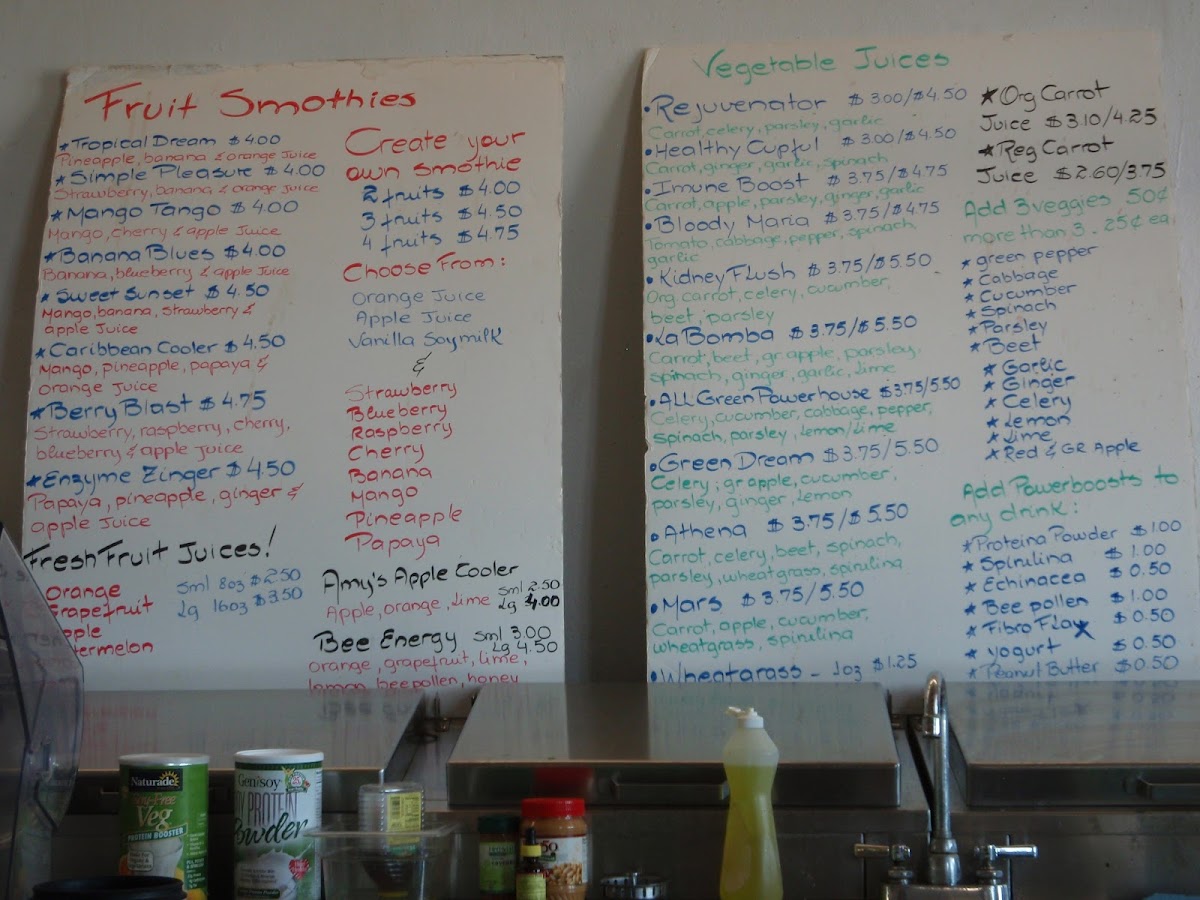 Fruit Smothies
★Tropical Dream $4.00
Pineapple, banana & orange Juice
★Simple Pleasure $4.00
Strawberry, banana & orange Juice
★Mango Tango $4.00
Mango, cherry & apple Juice
★Banana Blues $4.00
Banana, blueberry & apple Juice
★Sweet Sunset $4.50
Mango, banana, strawberry &
apple Juice
★Caribbean Cooler $4.50
Mango, pineapple, papaya &
orange Juice
★Berry Blast $4.75
Strawberry, raspberry, cherry,
blueberry & apple Juice
★Enzyme Zinger $4.50
Papaya, pineapple, ginger &
apple Juice
Fresh Fruit Juices!
Orange
Grapefruit
sml 8oz $2.50
Lg 16oz $3.50
Create your
own smothie
2 fruits $4.00
3 fruits $4.50
4 fruits $4.75
Choose From:
Orange Juice
Apple Juice
Vanilla Soymilk
&
Strawberry
Blueberry
Raspberry
Cherry
Banana
Mango
Pineapple
Papaya
Amy's Apple Cooler
Apple, orange, lime sml 2.50
Lg 4.00
Bee Energy sml 3.00
Lg 4.50
orange, grapefruit, lime,
lemon, beepollen, honey
Vegetable Juices
•Rejuvenator $3.00/$4.50
Carrot, celery, parsley, garlic
•Healthy Cupful $3.00/$4.50
Carrot, ginger, garlic, spinach
•Imune Boost $3.75/$4.75
Carrot, apple, parsley, ginger, garlic
•Bloody Maria $3.75/$4.75
Tomato, cabbage, pepper, spinach,
garlic
•Kidney Flush $3.75/$5.50
Org carrot, celery, cucumber,
beet, parsley
•La Bomba $3.75/$5.50
Carrot, beet, gr apple, parsley,
spinach, ginger, garlic, lime
•ALL Green Powerhouse $3.75/5.50
Celery, cucumber, cabbage, pepper,
spinach, parsley, lemon/lime
•Green Dream $3.75/5.50
Celery, gr apple, cucumber,
parsley, ginger, lemon
•Athena $3.75/$5.50
Carrot, celery, beet, spinach,
parsley, wheatgrass, spirulina
•Mars $3.75/5.50
Carrot, apple, cucumber,
wheatgrass, spirulina
•Wheatgrass - 1oz $1.25
★Org Carrot
Juice $3.10/4.25
★Reg Carrot
Juice $2.60/3.75
Add 3 veggies 50¢
more than 3 . 25¢ ea
★green pepper
★Cabbage
★Cucumber
★Spinach
★Parsley
★Beet
★Garlic
★Ginger
★Celery
★Lemon
★Lime
★Red & GR Apple
Add Powerboosts to
any drink:
★Proteina Powder $1.00
★Spirulina $1.00
★Echinacea $0.50
★Bee pollen $1.00
★Fibro Flax $0.50
★yogurt $0.50
★Peanut Butter $0.50
Naturade
Veg
PROTEIN BOOSTER
Genisoy
PROTEIN
Powder